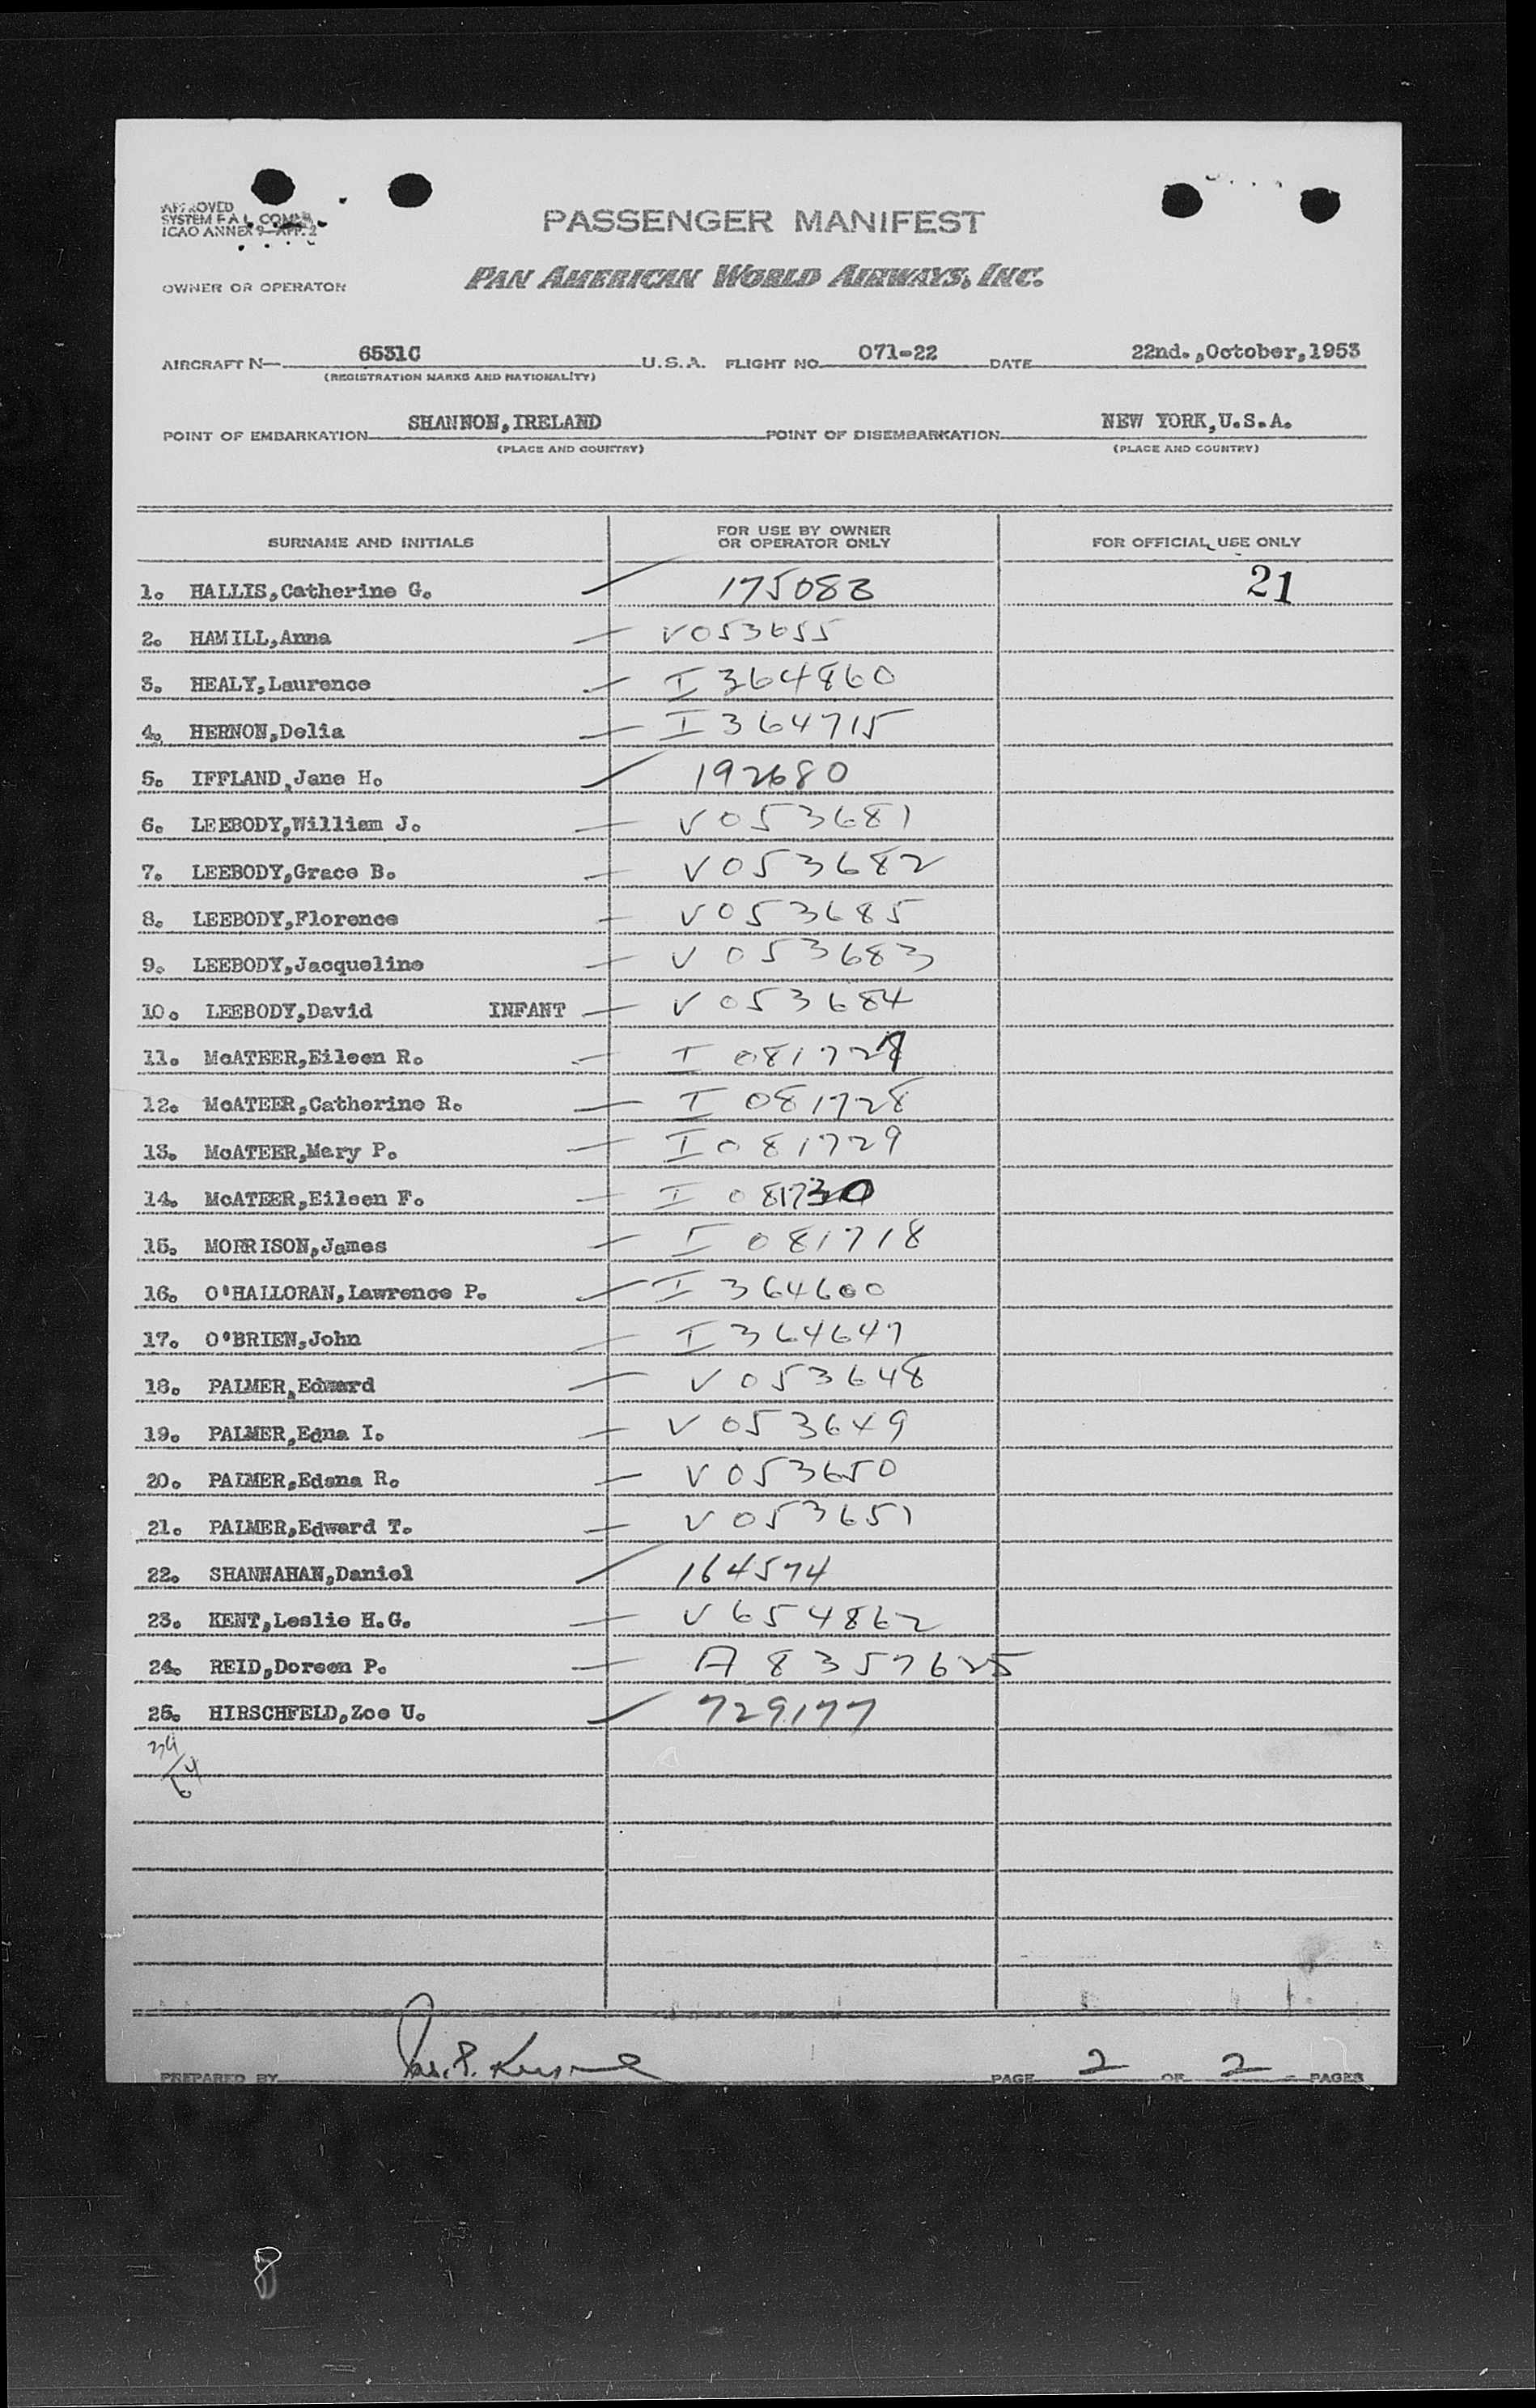 APPROVED
SYSTEM F A L COMM.
ICAO ANNEX 9-APP. 2
PASSENGER MANIFEST
OWNER OR OPERATOR
PAN AMERICAN WORLD AIRWAYS, INC.
AIRCRAFT N- 6531C U.S.A. FLIGHT NO. 071-22 DATE 22nd.,October,1953
(REGISTRATION MARKS AND NATIONALITY)
POINT OF EMBARKATION SHANNON,IRELAND POINT OF DISEMBARKATION NEW YORK,U.S.A.
(PLACE AND COUNTRY) (PLACE AND COUNTRY)
SURNAME AND INITIALS FOR USE BY OWNER OR OPERATOR ONLY FOR OFFICIAL USE ONLY
1. HALLIS,Catherine G. 175083 21
2. HAMILL,Anna V053655
3. HEALY,Laurence I 364860
4. HERNON,Delia I 364715
5. IFFLAND,Jane H. 192680
6. LEEBODY,William J. V053681
7. LEEBODY,Grace B. V053682
8. LEEBODY,Florence V053685
9. LEEBODY,Jacqueline V053683
10. LEEBODY,David INFANT V053684
11. McATEER,Eileen R. I 081727
12. McATEER,Catherine R. I 081728
13. McATEER,Mary P. I 081729
14. McATEER,Eileen F. I 081730
15. MORRISON,James I 081718
16. O'HALLORAN,Lawrence P. I 364600
17. O'BRIEN,John I 364647
18. PALMER,Edward V053648
19. PALMER,Edna I. V053649
20. PALMER,Edana R. V053650
21. PALMER,Edward T. V053651
22. SHANNAHAN,Daniel 164574
23. KENT,Leslie H.G. V654862
24. REID,Doreen P. A 8357625
25. HIRSCHFELD,Zoe U. 729177
39
64
PREPARED BY PAGE 2 OF 2 PAGES
8